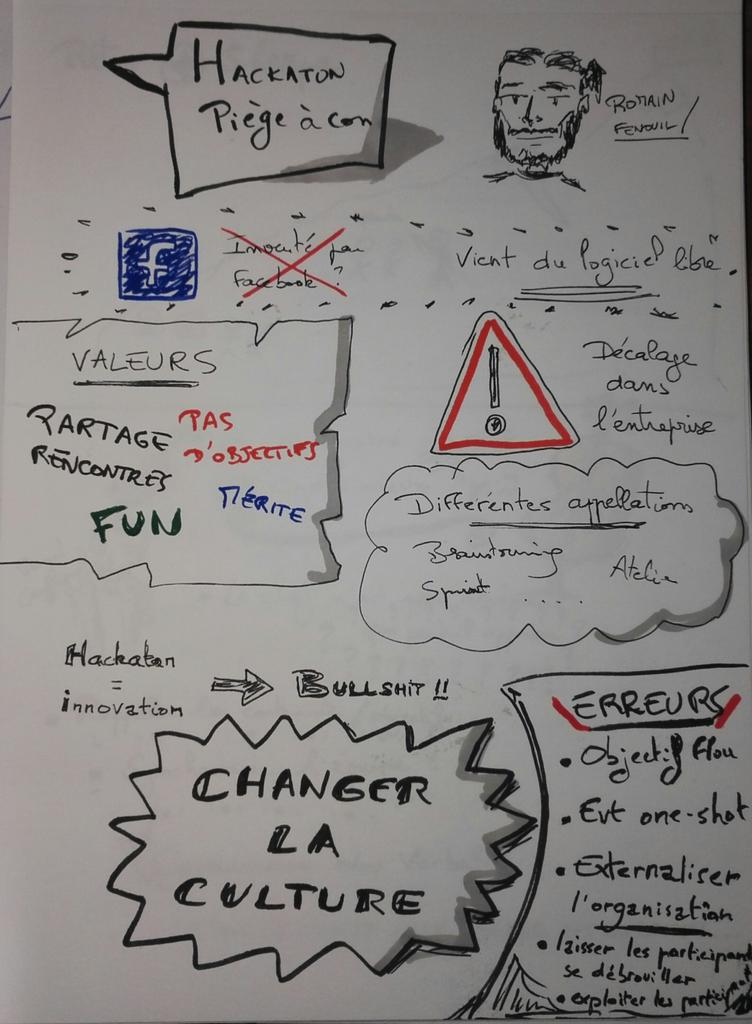 HACKATON
Piège à con
ROMAIN
FENOUIL
f
Inventé par
Facebook ?
Vient du logiciel libre.
VALEURS
PARTAGE
RENCONTRES
PAS
D'OBJECTIFS
MÉRITE
FUN
!
Décalage
dans
l'entreprise
Différentes appellations
Brainstorming
Sprint .....
Atelier
Hackaton
=
innovation
BULLSHIT !!
CHANGER
LA
CULTURE
ERREURS
• Objectif flou
• Evt one-shot
• Externaliser
l'organisation
• laisser les participant
se débrouiller
• exploiter les